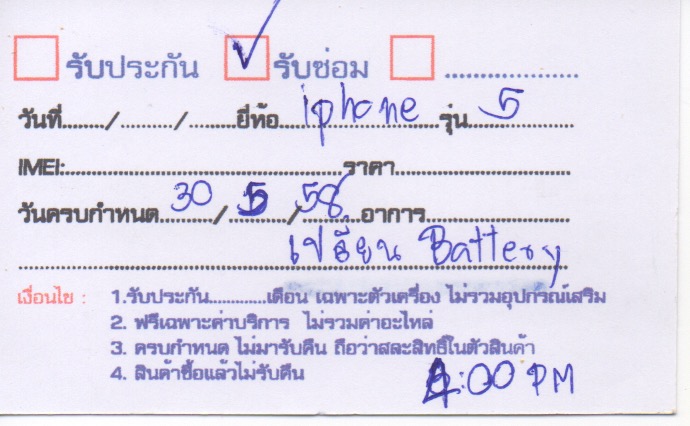 รับประกัน ✓ รับซ่อม ....................
วันที่......../........./.........ยี่ห้อ iphone รุ่น 5
IMEI:..................................................ราคา................................
วันครบกำหนด 30 / 5 / 58 อาการ...........................
เปลี่ยน Battery
เงื่อนไข : 1.รับประกัน.............เดือน เฉพาะตัวเครื่อง ไม่รวมอุปกรณ์เสริม
2. ฟรีเฉพาะค่าบริการ ไม่รวมค่าอะไหล่
3. ครบกำหนด ไม่มารับคืน ถือว่าสละสิทธิ์ในตัวสินค้า
4. สินค้าซื้อแล้วไม่รับคืน
:00 PM